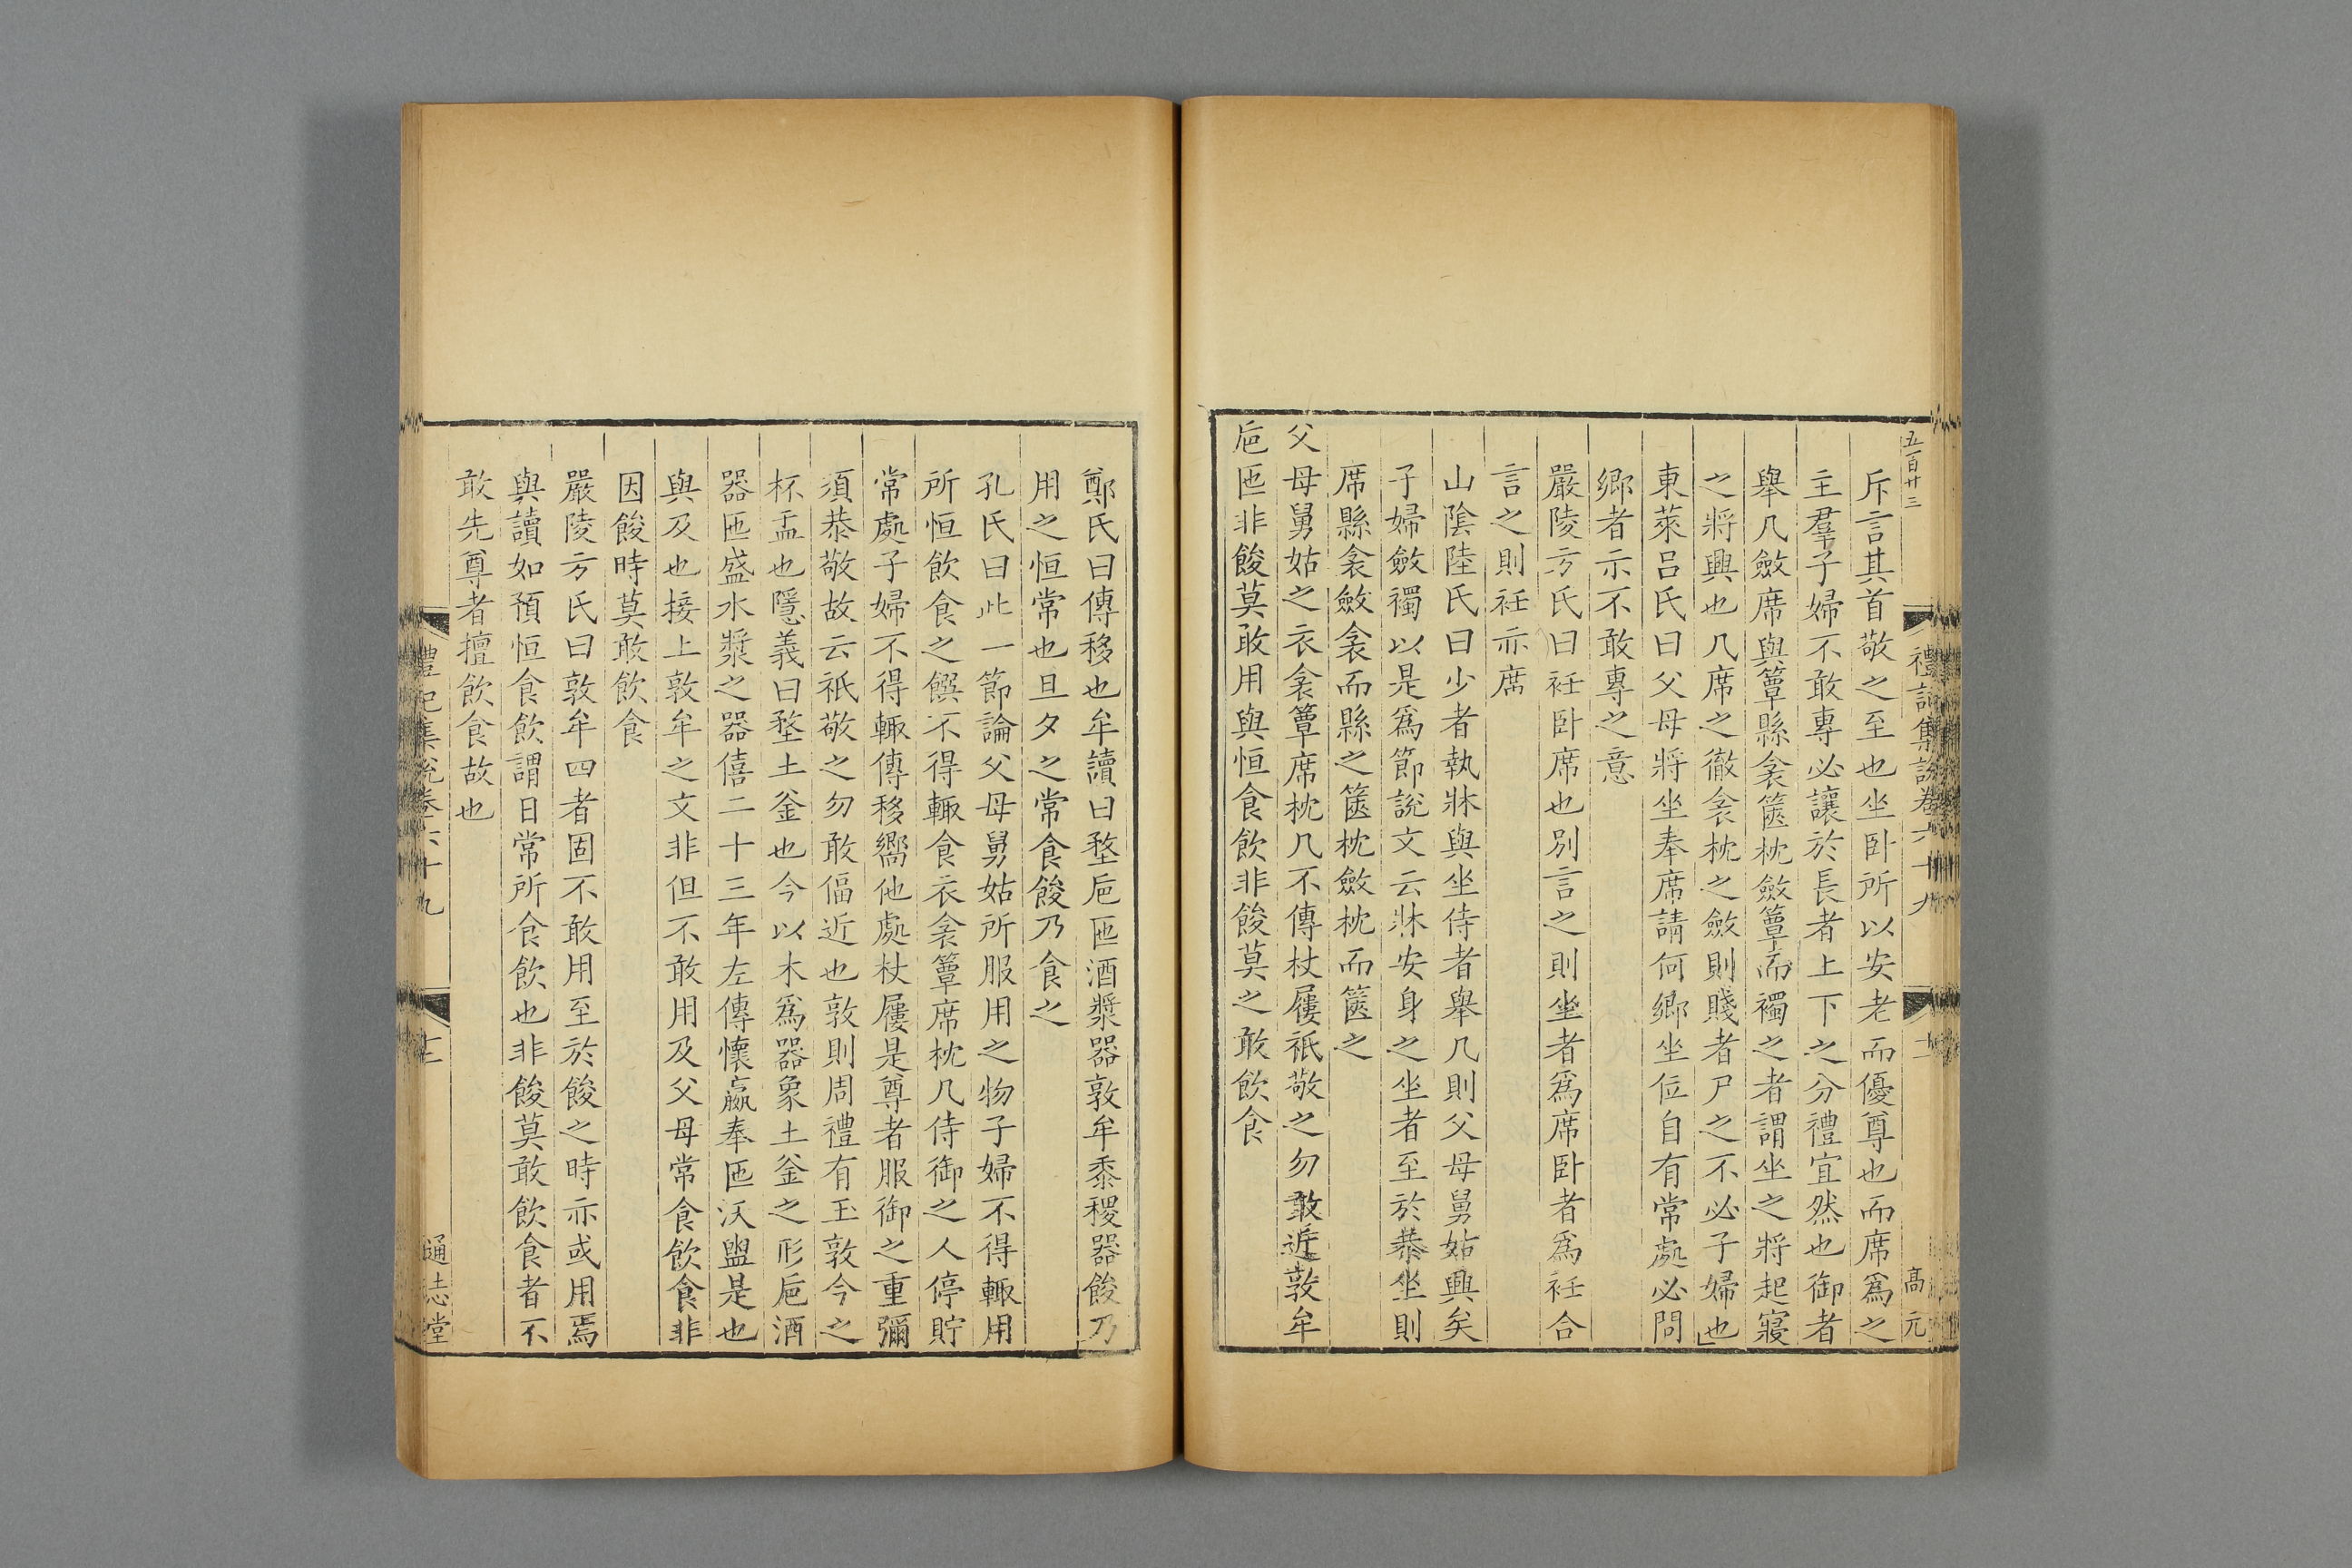 五百廿三
禮記集說卷六十九
高元
斥言其首敬之至也坐卧所以安老而優尊也而席爲之
主羣子婦不敢專必讓於長者上下之分禮宜然也御者
舉几斂席與簟縣衾篋枕斂簟而襡之者謂坐之將起寢
之將興也几席之徹衾枕之斂則賤者尸之不必子婦也
東萊呂氏曰父母將坐奉席請何鄉坐位自有常處必問
鄉者示不敢專之意
嚴陵方氏曰衽卧席也別言之則坐者爲席卧者爲衽合
言之則衽亦席
山陰陸氏曰少者執牀與坐侍者舉几則父母舅姑興矣
子婦斂襡以是爲節說文云牀安身之坐者至於恭坐則
席縣衾斂衾而縣之篋枕斂枕而篋之
父母舅姑之衣衾簟席枕几不傳杖屨祇敬之勿敢近敦牟
巵匜非餕莫敢用與恒食飲非餕莫之敢飲食
鄭氏曰傳移也牟讀曰堥巵匜酒漿器敦牟黍稷器餕乃
用之恒常也旦夕之常食餕乃食之
孔氏曰此一節論父母舅姑所服用之物子婦不得輒用
所恒飲食之饌不得輒食衣衾簟席枕几侍御之人停貯
常處子婦不得輒傳移嚮他處杖屨是尊者服御之重彌
須恭敬故云祇敬之勿敢偪近也敦則周禮有玉敦今之
杯盂也隱義曰堥土釜也今以木爲器象土釜之形巵酒
器匜盛水漿之器僖二十三年左傳懷嬴奉匜沃盥是也
與及也接上敦牟之文非但不敢用及父母常食飲食非
因餕時莫敢飲食
嚴陵方氏曰敦牟四者固不敢用至於餕之時亦或用焉
與讀如預恒食飲謂日常所食飲也非餕莫敢飲食者不
敢先尊者擅飲食故也
禮記集說卷六十九
通志堂